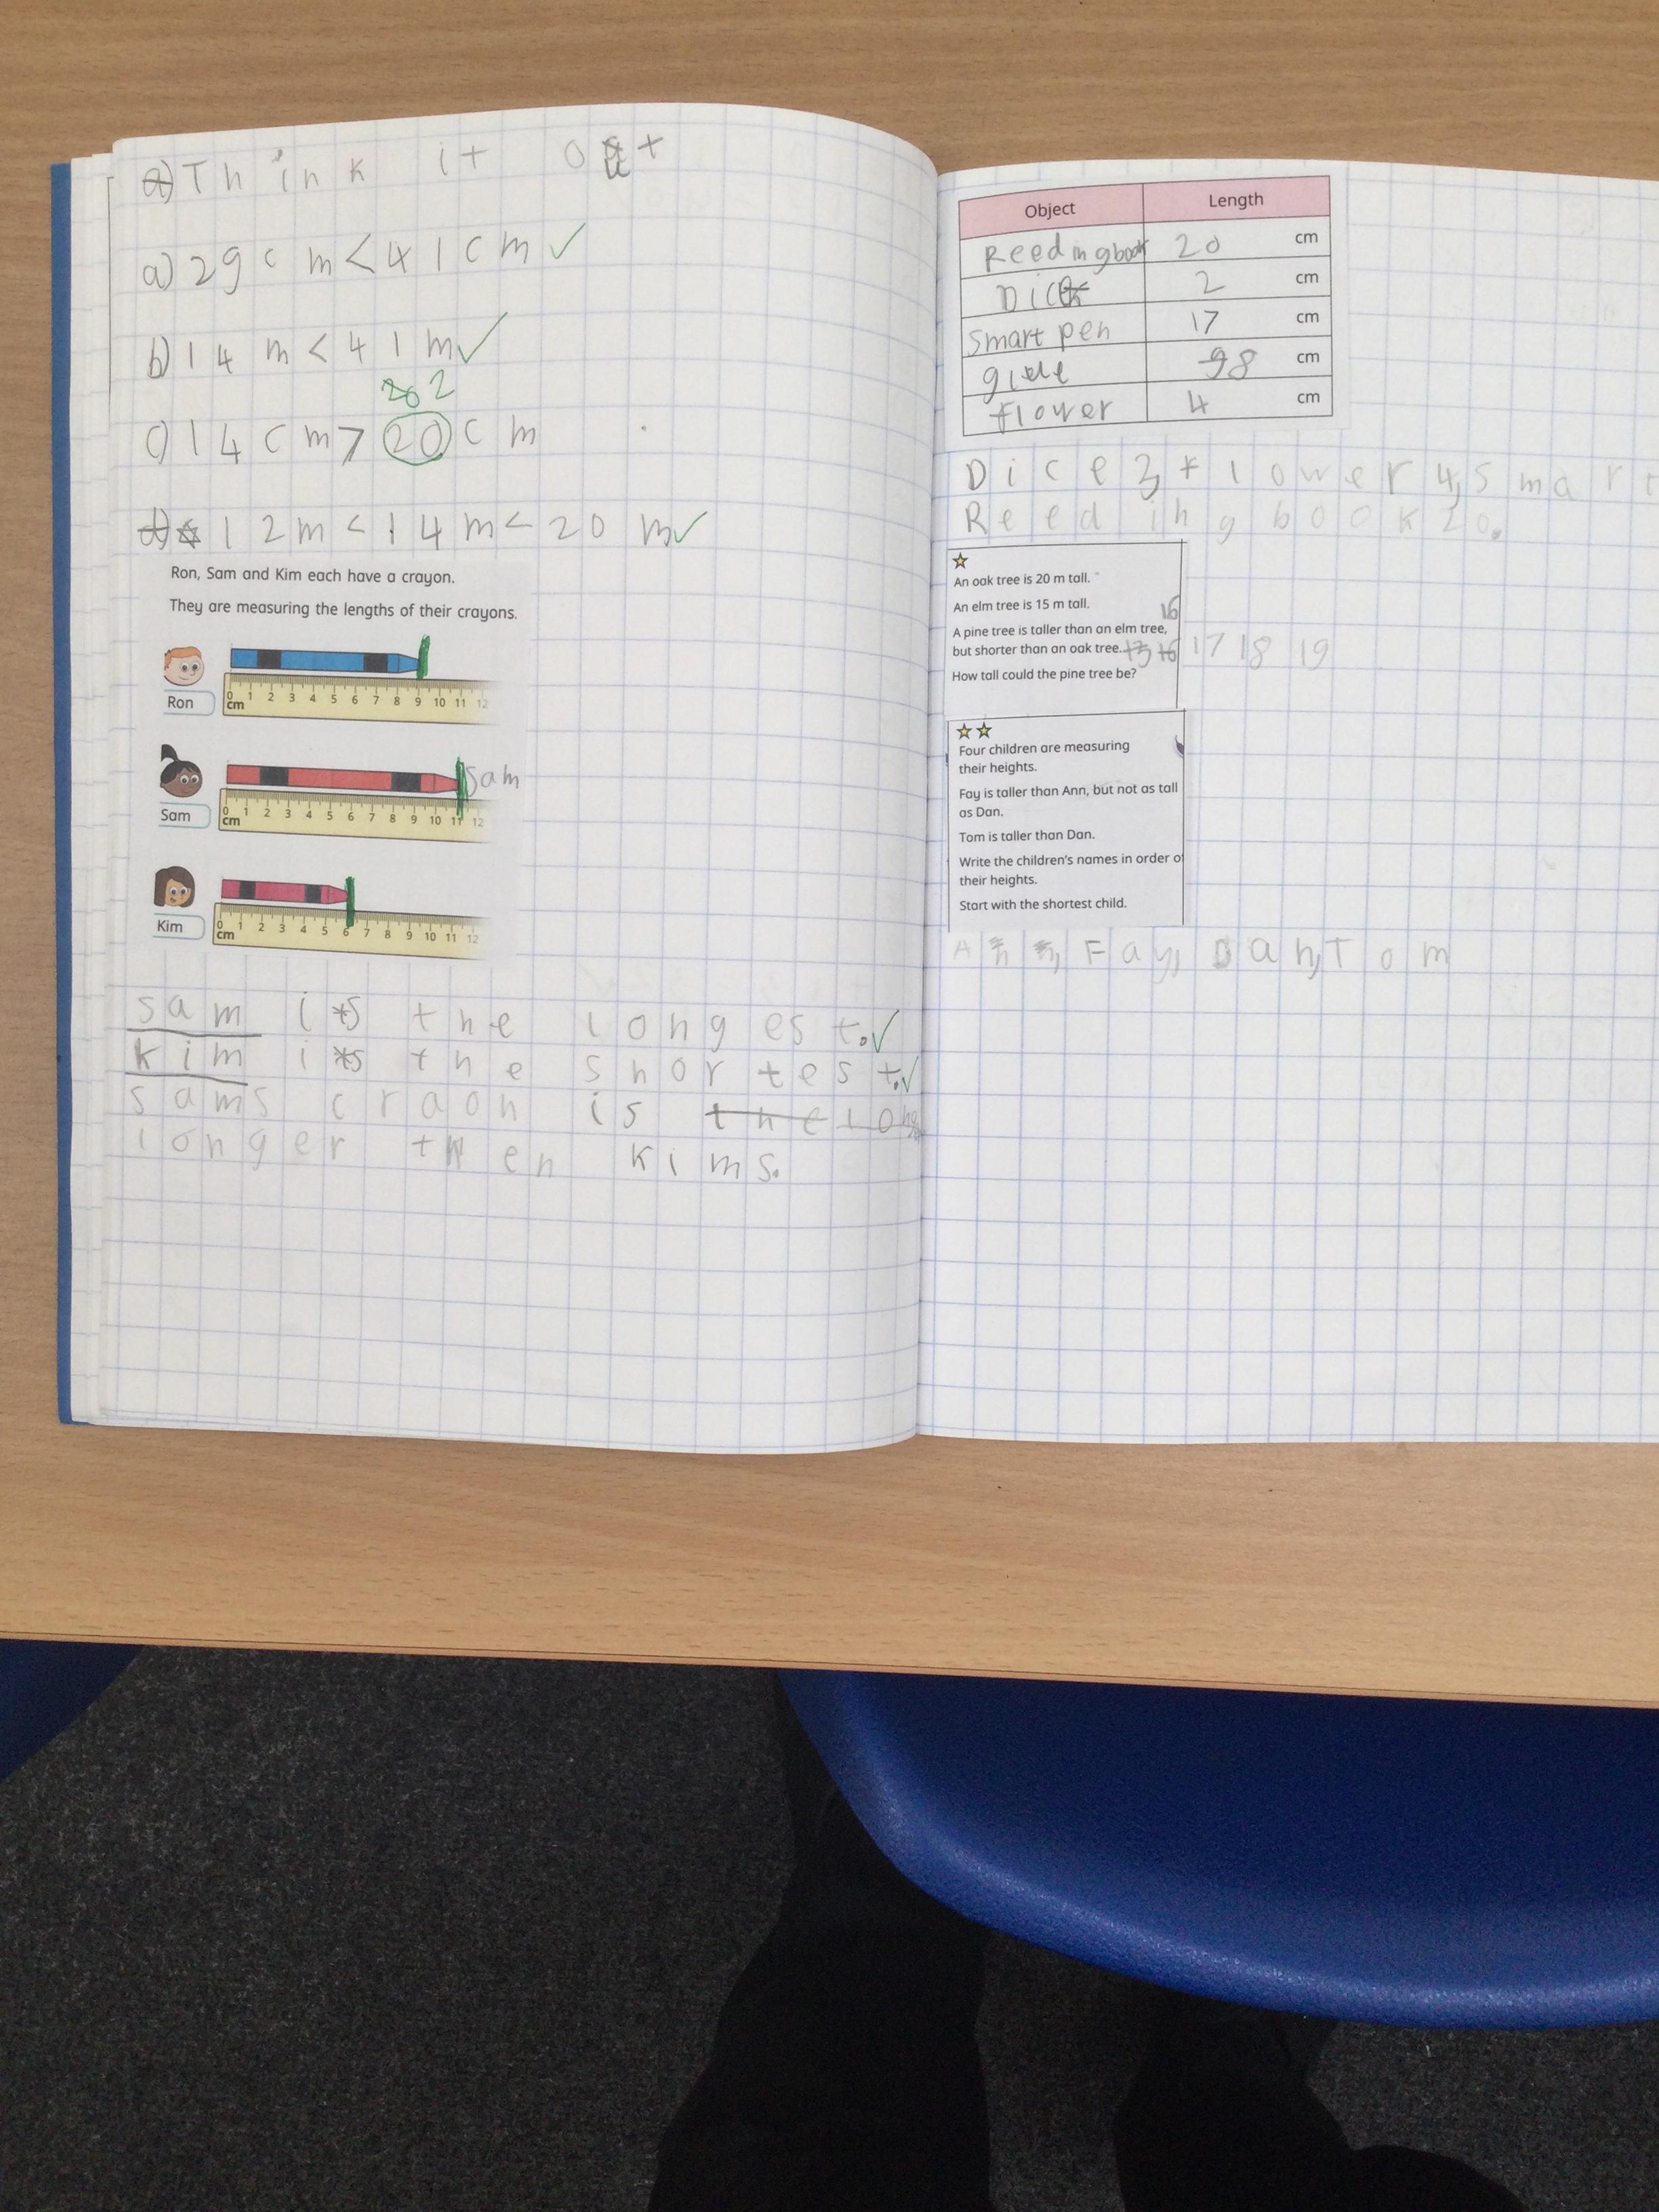 a) Think it out
a) 29cm < 41cm ✓
b) 14m < 41m ✓
202
c) 14cm > 20cm
12m < 14m < 20m ✓
Ron, Sam and Kim each have a crayon.
They are measuring the lengths of their crayons.
0 1 2 3 4 5 6 7 8 9 10 11 12
cm
Ron
Sam
0 1 2 3 4 5 6 7 8 9 10 11 12
cm
Sam
0 1 2 3 4 5 6 7 8 9 10 11 12
cm
Kim
sam is the longest. ✓
kim is the shortest. ✓
sams craon is the long
longer then kims.
Object Length
Reedingbook 20 cm
Dice 2 cm
Smart pen 17 cm
98 cm
flower 4 cm
Dice 2, flower 4, Smart
Reeding book 20.
An oak tree is 20 m tall.
An elm tree is 15 m tall.
16
A pine tree is taller than an elm tree,
but shorter than an oak tree. 17 18 19
How tall could the pine tree be?
Four children are measuring
their heights.
Fay is taller than Ann, but not as tall
as Dan.
Tom is taller than Dan.
Write the children's names in order of
their heights.
Start with the shortest child.
Ann, Fay, Dan, Tom